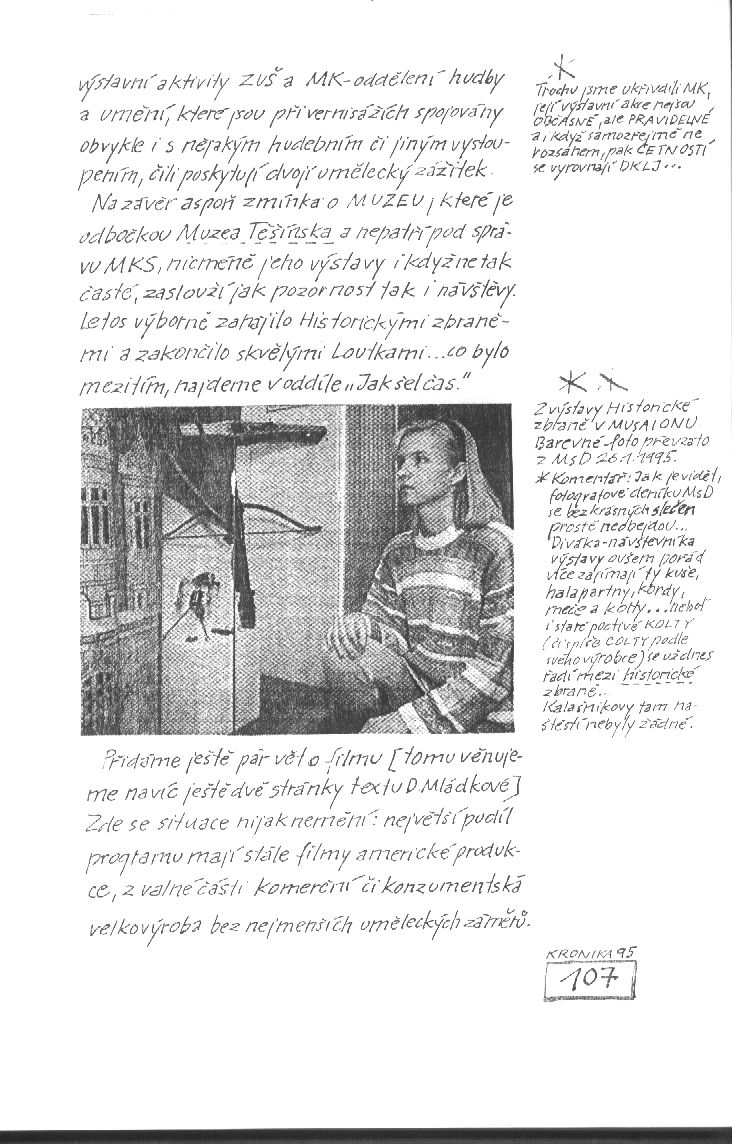 výstavní aktivity ZUŠ a MK-oddělení hudby
a umění, které jsou při vernisážích spojovány
obvykle i s nějakým hudebním či jiným vystou-
pením, čili poskytují dvojí umělecký zážitek.
Na závěr aspoň zmínka o MUZEU, které je
odbočkou Muzea Těšínska a nepatří pod sprá-
vu MKS, nicméně jeho výstavy i když ne tak
časté, zaslouží jak pozornost tak i návštěvy.
Letos výborně zahájilo Historickými zbraně-
mi a zakončilo skvělými Loutkami...co bylo
mezitím, najdeme v oddíle „Jak šel čas."
Přidáme ještě pár vět o filmu [tomu věnuje-
me navíc ještě dvě stránky textu D. Mládkové]
Zde se situace nijak nemění: největší podíl
programu mají stále filmy americké produk-
ce, z valné části komerční či konzumentská
velkovýroba bez nejmenších uměleckých záměrů.
*
Trochu jsme ukřivdili MK,
její výstavní akce nejsou
OBČASNÉ, ale PRAVIDELNÉ
a i když samozřejmě ne
rozsahem, pak ČETNOSTÍ
se vyrovnají DKLJ...
* *
Z výstavy Historické
zbraně v MUSAIONU
Barevné foto převzato
z MsD 26.1.1995.
* Komentář: Jak je vidět,
fotografové deníku MsD
se bez krásných slečen
prostě neobejdou...
Diváka-návštěvníka
výstavy ovšem pořád
více zajímají ty kuše,
halapartny, kordy,
meče a kolty...neboť
i staré poctivé KOLTY
(či spíše COLTY podle
svého výrobce) se už dnes
řadí mezi historické
zbraně...
Kalašnikovy tam na-
štěstí nebyly žádné.
KRONIKA 95
107